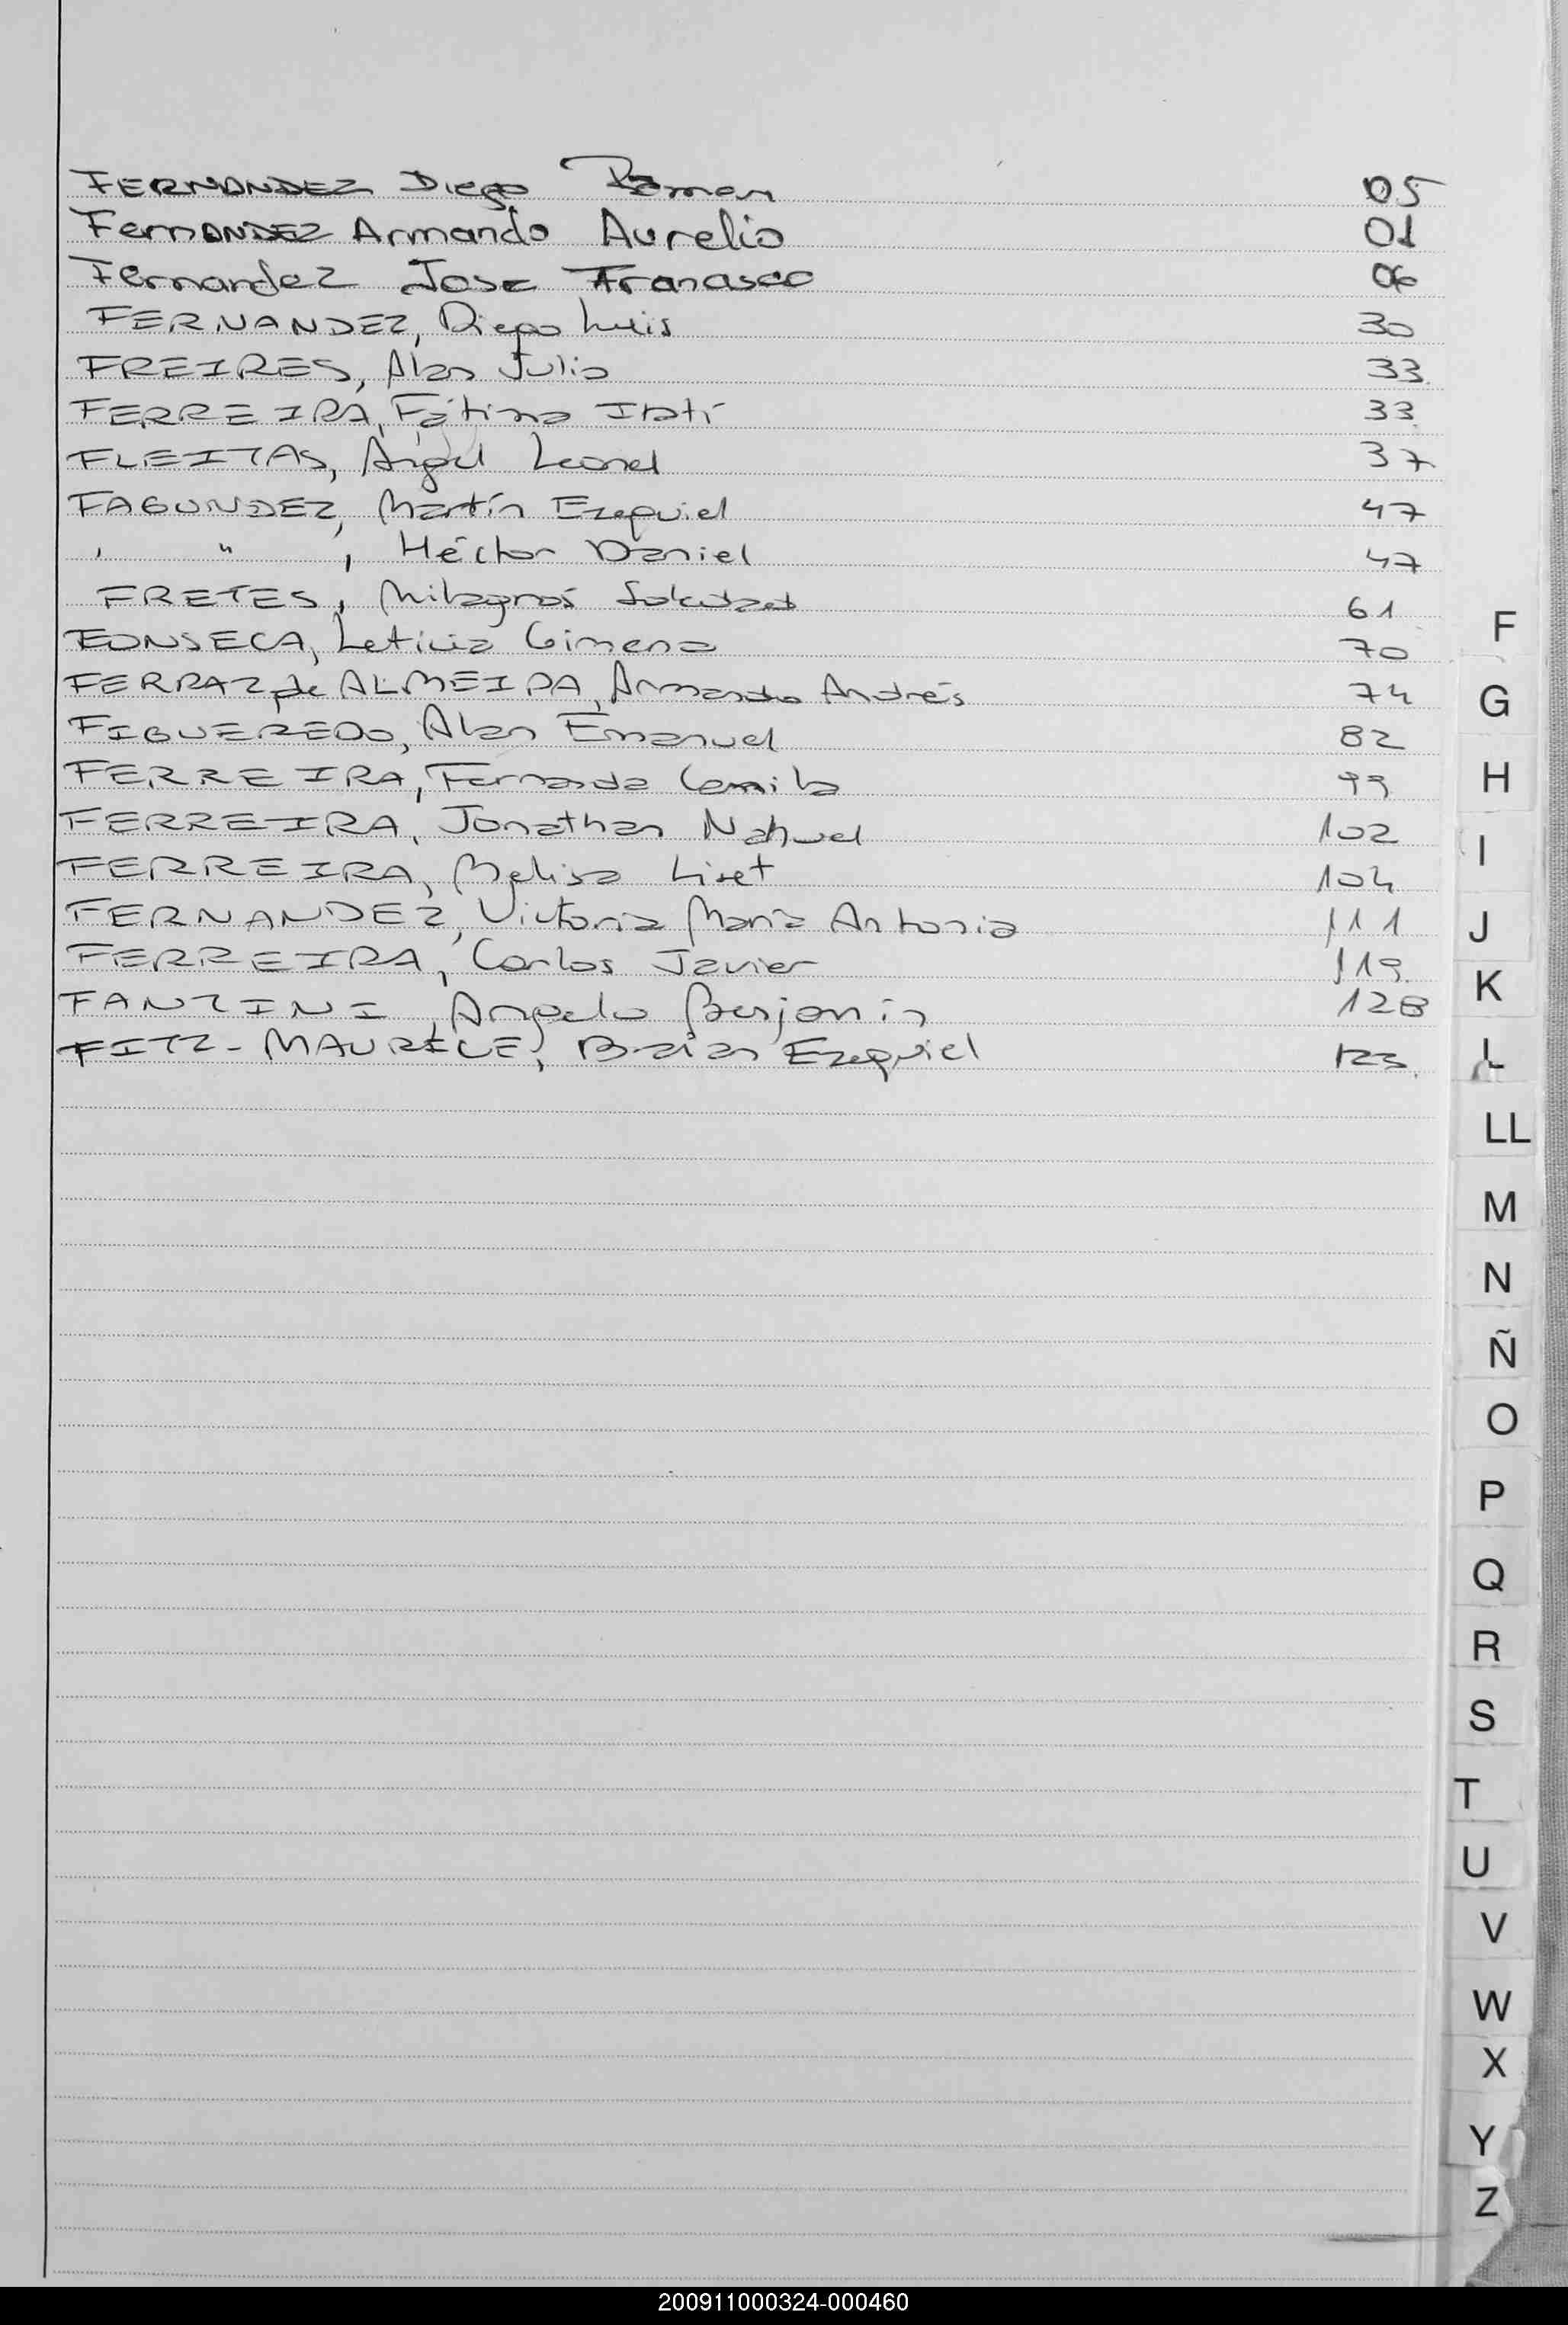 FERNANDEZ Diego Roman 05
Fernandez Armando Aurelio 01
Fernandez Jose Francisco 06
FERNANDEZ, Diego Luis 30
FREIRES, Alan Julio 33
FERREIRA, Fátima Itatí 33
FLEITAS, Angel Leonel 37
FAGUNDEZ, Martín Ezequiel 47
" , Héctor Daniel 47
FRETES, Milagros 61
FONSECA, Leticia Gimena 70
FERRAZ de ALMEIDA, Armando Andrés 74
FIGUEREDO, Alan Emanuel 82
FERREIRA, Fernanda Camila 99
FERREIRA, Jonathan Nahuel 102
FERREIRA, Melisa Liset 104
FERNANDEZ, Victoria María Antonia 111
FERREIRA, Carlos Javier 119
FANZINI, Angelo Benjamin 128
FITZ-MAURICE, Brian Ezequiel 123
F
G
H
I
J
K
L
LL
M
N
Ñ
O
P
Q
R
S
T
U
V
W
X
Y
Z
200911000324-000460